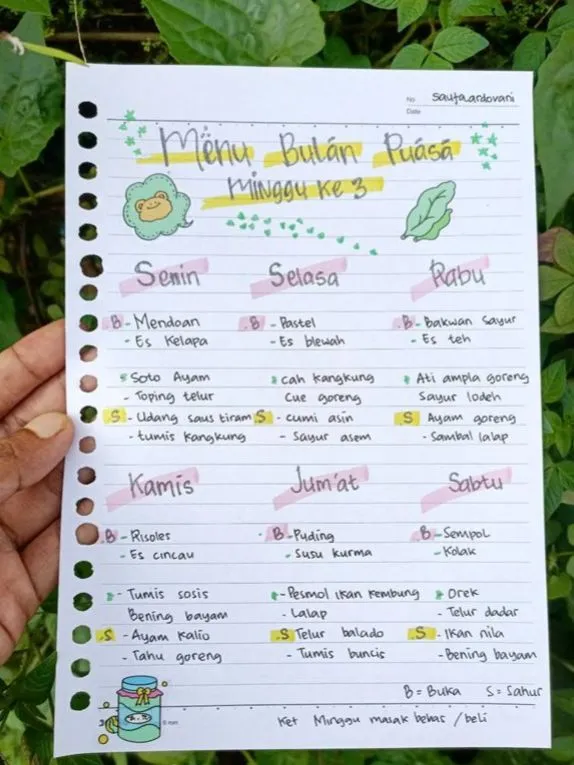 No sayfa.ardovani
Date
Menu Bulan Puasa
Minggu ke 3
Senin
B - Mendoan
- Es Kelapa
Soto Ayam
- Toping telur
S - Udang saus tiram
- tumis kangkung
Selasa
B - Pastel
- Es blewah
cah kangkung
Cue goreng
S - cumi asin
- Sayur asem
Rabu
B - Bakwan sayur
- Es teh
Ati ampla goreng
Sayur lodeh
S Ayam goreng
- Sambal lalap
Kamis
B - Risoles
- Es cincau
- Tumis sosis
Bening bayam
S - Ayam Kalio
- Tahu goreng
Jum'at
B - Puding
- Susu kurma
- Pesmol ikan kembung
- Lalap
S Telur balado
- Tumis buncis
Sabtu
B - Sempol
- Kolak
Orek
- Telur dadar
S - Ikan nila
- Bening bayam
B = Buka S = Sahur
Ket Minggu masak bebas / beli